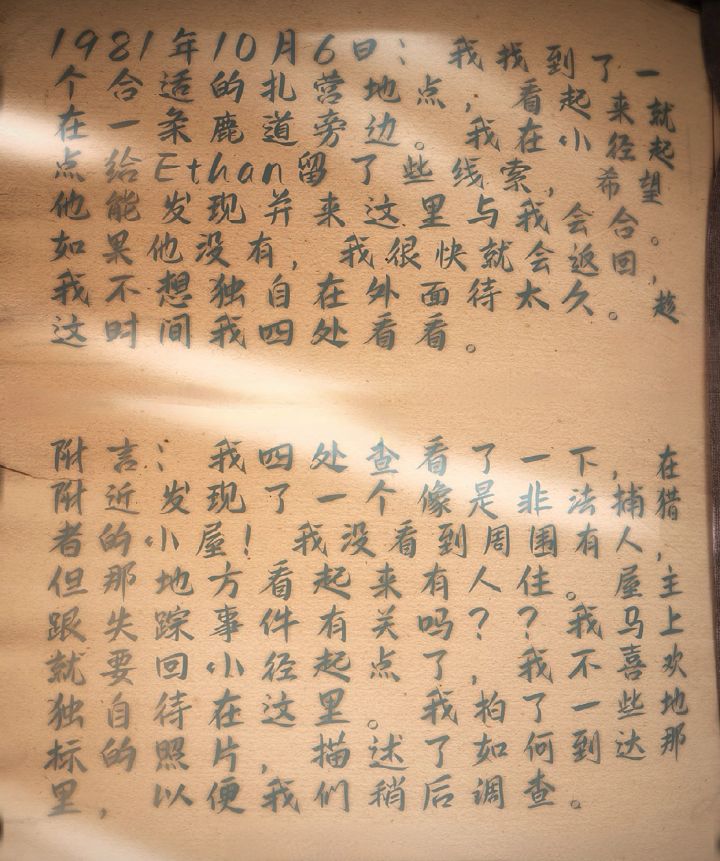 1981年10月6日： 我找到了一
个合适的扎营地点，看起来就
在一条鹿道旁边。我在小径起
点给Ethan留了些线索，希望
他能发现并来这里与我会合。
如果他没有，我很快就会返回，
我不想独自在外面待太久。趁
这时间我四处看看。
附言： 我四处查看了一下，在
附近发现了一个像是非法捕猎
者的小屋！我没看到周围有人，
但那地方看起来有人住。屋主
跟失踪事件有关吗？？我马上
就要回小径起点了，我不喜欢
独自待在这里。我拍了一些地
标的照片，描述了如何到达那
里，以便我们稍后调查。